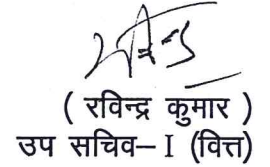 ( रविन्द्र कुमार )
उप सचिव– I (वित्त)